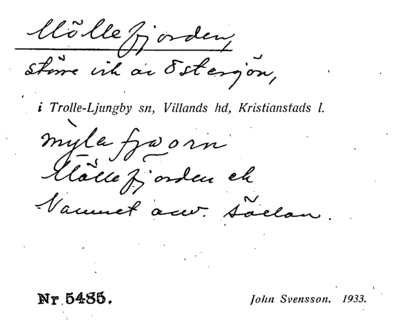 Möllefjorden,
större vik av Östersjön,
i Trolle-Ljungby sn, Villands hd, Kristianstads l.
Möllefjorden ek
Namnet anv. sällan.
Nr 5485. John Svensson. 1933.